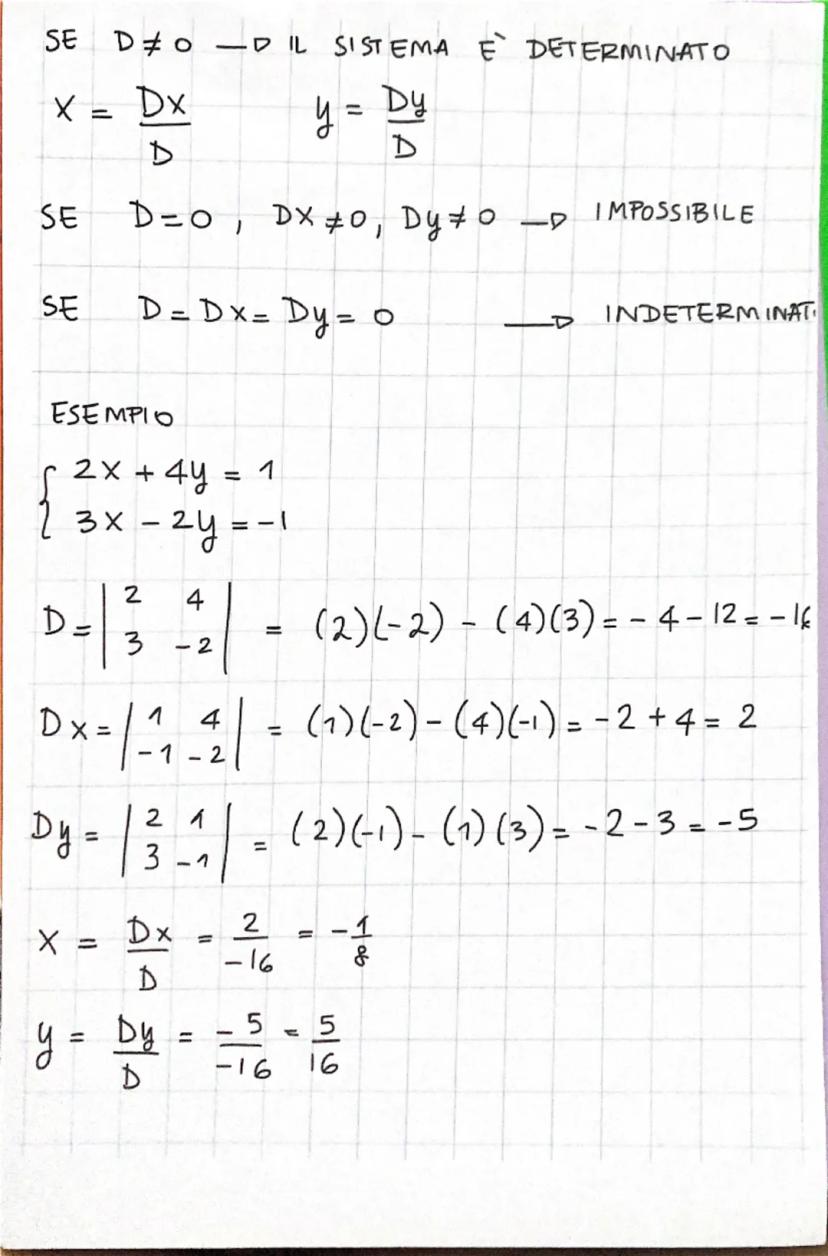 SE D≠0 → IL SISTEMA È DETERMINATO
x = Dx/D y = Dy/D
SE D=0, Dx≠0, Dy≠0 → IMPOSSIBILE
SE D=Dx=Dy=0 → INDETERMINAT
ESEMPIO
{ 2x + 4y = 1
3x - 2y = -1
D = | 2 4 | = (2)(-2) - (4)(3) = -4 - 12 = -16
| 3 -2 |
Dx = | 1 4 | = (1)(-2) - (4)(-1) = -2 + 4 = 2
| -1 -2 |
Dy = | 2 1 | = (2)(-1) - (1)(3) = -2 - 3 = -5
| 3 -1 |
x = Dx/D = 2/-16 = -1/8
y = Dy/D = -5/-16 = 5/16